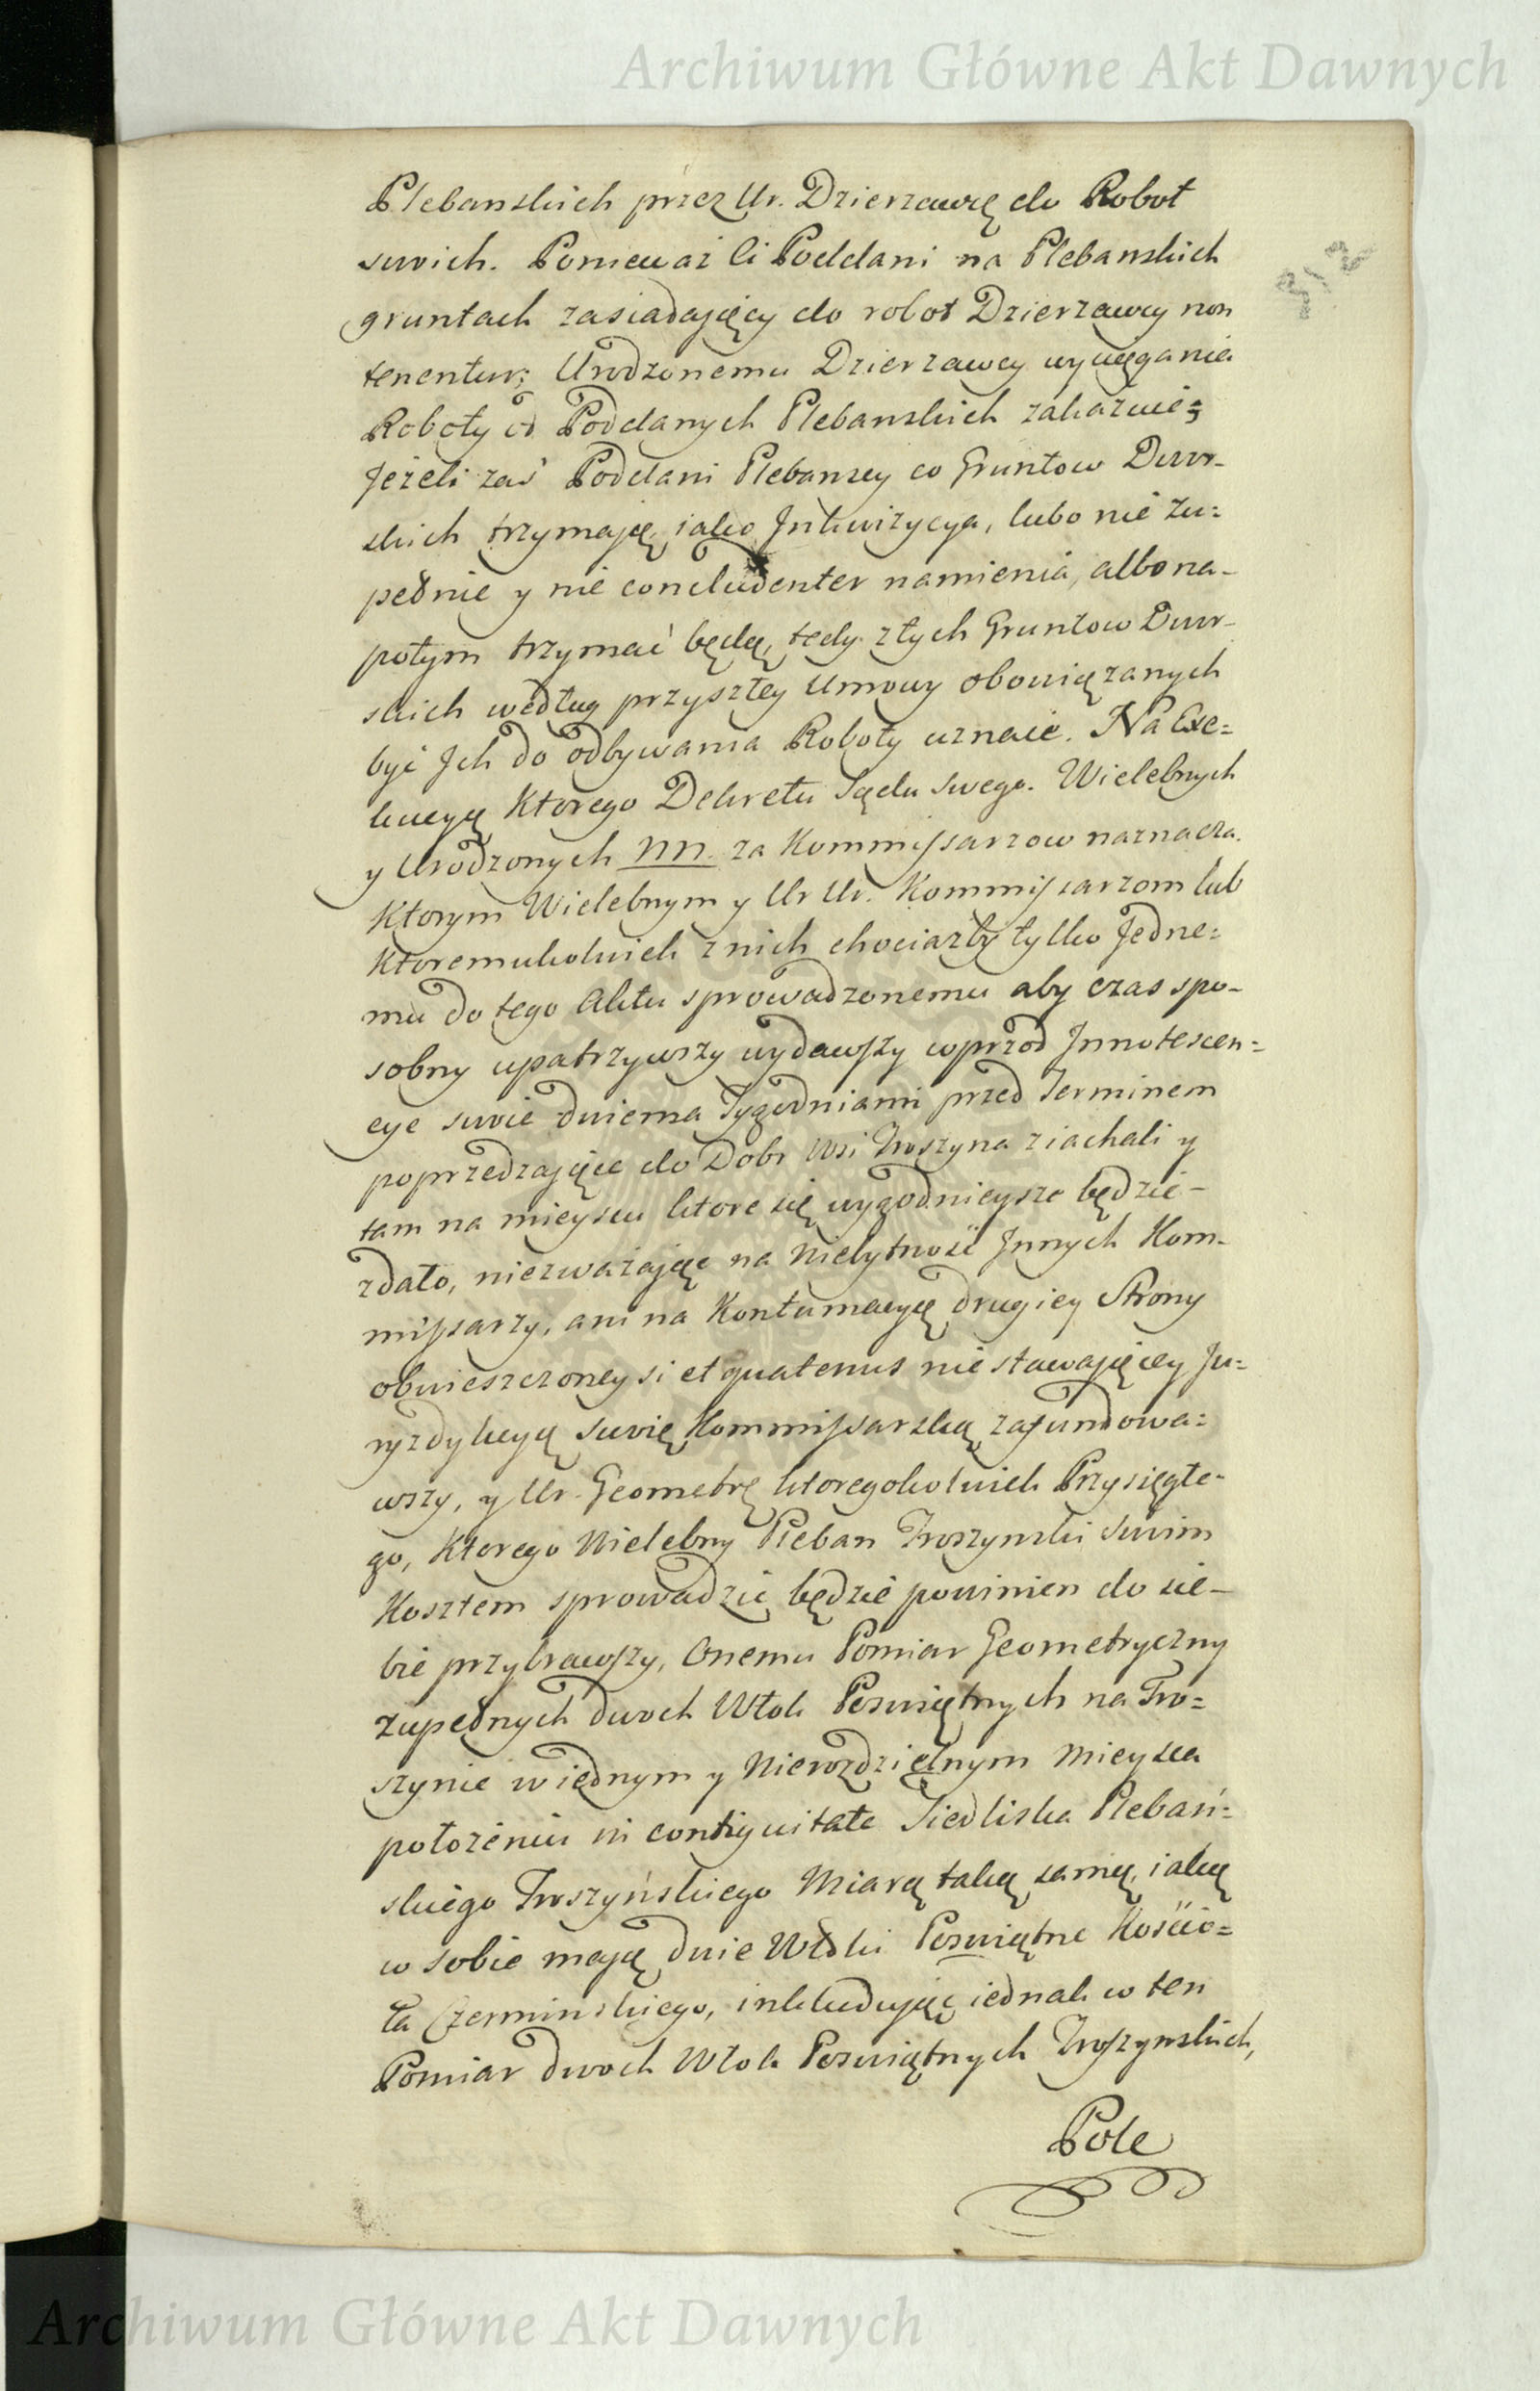 Archiwum Główne Akt Dawnych
Plebanskich przez Ur. Dzierzawcę do Robot
swoich. Ponieważ Ci Poddani na Plebanskich
gruntach zasiadaiący do robot Dzierzawcy non
tenentur; Urodzonemu Dzierzawcy wyciągania
Roboty od Poddanych Plebanskich zakazuie;
Jeżeli zaś Poddani Plebanscy co Gruntow Dwor-
skich trzymają, iako Inkwizycya, lubo nie zu=
pełnie y nie concludenter namienia, albo na-
potym trzymać będą, tedy z tych Gruntow Dwor-
skich według przyszłey Umowy obowiązanych
być Ich do odbywania Roboty uznaie. Na Exe=
kucyą Ktorego Dekretu Sądu swego. Wielebnych
y Urodzonych NN. za Kommissarzow naznacza.
Ktorym Wielebnym y Ur Ur. Kommissarzom lub
Ktoremukolwiek z nich chociażby tylko Jedne=
mu do tego Aktu sprowadzonemu aby czas spo-
sobny upatrzywszy wydawszy wprzod Innotescen=
cye swoie dwiema Tygodniami przed Terminem
poprzedzaiące do Dobr Wsi Troszyna ziachali y
tam na mieyscu ktore się wygodnieysze będzie-
zdało, niezważaiąc na Niebytność Innych Kom-
missarzy, ani na Kontumacyą drugiey Strony
obwieszczoney si et quatenus nie stawaiącey Ju=
ryzdykcyą swoię Kommissarską zafundowa=
wszy, y Ur. Geometrę ktoregokolwiek Przysięgłe-
go, Ktorego Wielebny Pleban Troszynski swoim
Kosztem sprowadzić będzie powinien do sie-
bie przybrawszy, Onemu Pomiar Geometryczny
zupełnych dwoch Włok Poswiętnych na Tro=
szynie w iednym y Nierozdzielnym Mieysca
położeniu in contiguitate Siedliska Plebań=
skiego Troszyńskiego Miarą taką samą, iaką
w sobie maią dwie Włoki Poswiętne Kościo=
ła Czerminskiego, inkluduiąc iednak w ten
Pomiar dwoch Włok Poswiętnych Troszynskich,
Pole
Archiwum Główne Akt Dawnych